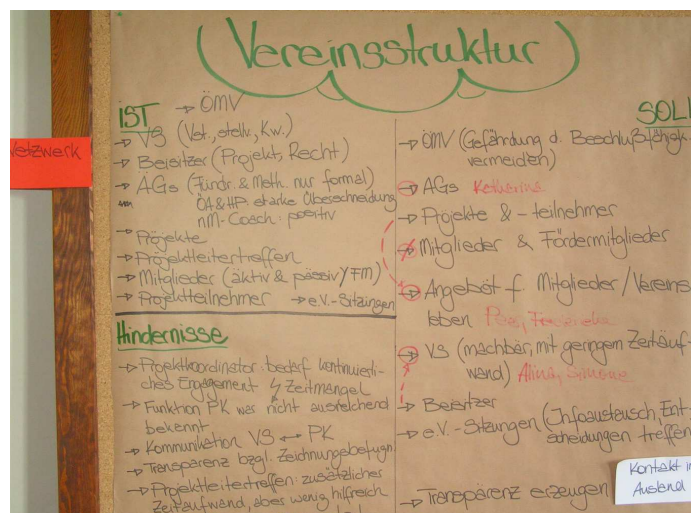 Vereinsstruktur
Netzwerk
IST → ÖMV
→ VS (Vot., stellv., Kw.)
→ Beisitzer (Projekt, Recht)
→ AGs (Fundr. & Meth. nur formal)
ÖA & HP: starke Überschneidung
nM-Coach: positiv
→ Projekte
→ Projektleitertreffen
→ Mitglieder (aktiv & passiv / FM)
→ Projektteilnehmer → e.V.-Sitzungen
Hindernisse
→ Projektkoordinator: bedarf kontinuierli-
ches Engagement ↯ Zeitmangel
→ Funktion PK war nicht ausreichend
bekannt
→ Kommunikation VS ↔ PK
→ Transparenz bzgl. Zeichnungsbefugn
→ Projektleitertreffen: zusätzliches
Zeitaufwand, aber wenig hilfreich
SOLL
→ ÖMV (Gefährdung d. Beschlußfähigk.
vermeiden)
→ AGs Katharina
→ Projekte & -teilnehmer
→ Mitglieder & Fördermitglieder
→ Angebot f. Mitglieder / Vereins
leben
→ VS (machbar, mit geringem Zeitauf-
wand) Alina, Simone
→ Beisitzer
→ e.V.-Sitzungen (Infoaustausch, Ent-
scheidungen treffen
→ Transparenz erzeugen
Kontakt in
Ausland